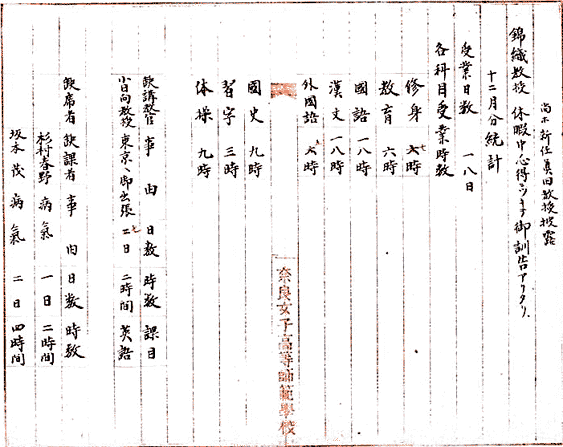 尚ホ新任真田教授披露
錦織教授 休暇中心得ニツキ御訓告アリタリ、
十二月分統計
受業日数 一八日
各科目受業時数
修身 七時
教育 六時
國語 一八時
漢文 一八時
外國語 六時
國史 九時
習字 三時
体操 九時
奈良女子高等師範學校
缺講教官 事由 日数 時数 課目
小日向教授 東京ヘ御出張 二日 二時間 英語
缺席者 缺課者 事由 日数 時数
杉村春野 病氣 一日 二時間
坂本茂 病氣 二日 四時間